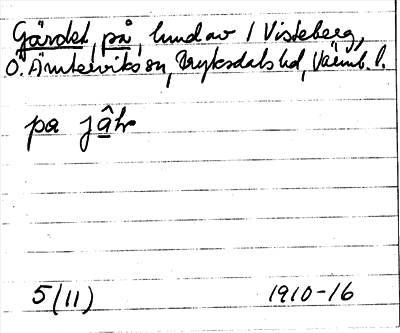 Gärdet, på, lund av 1 Visteberg,
Ö. Ämterviks sn, Fryksdals hd, Värml. l.
pa jâ̱ḷe
5(11) 1910-16